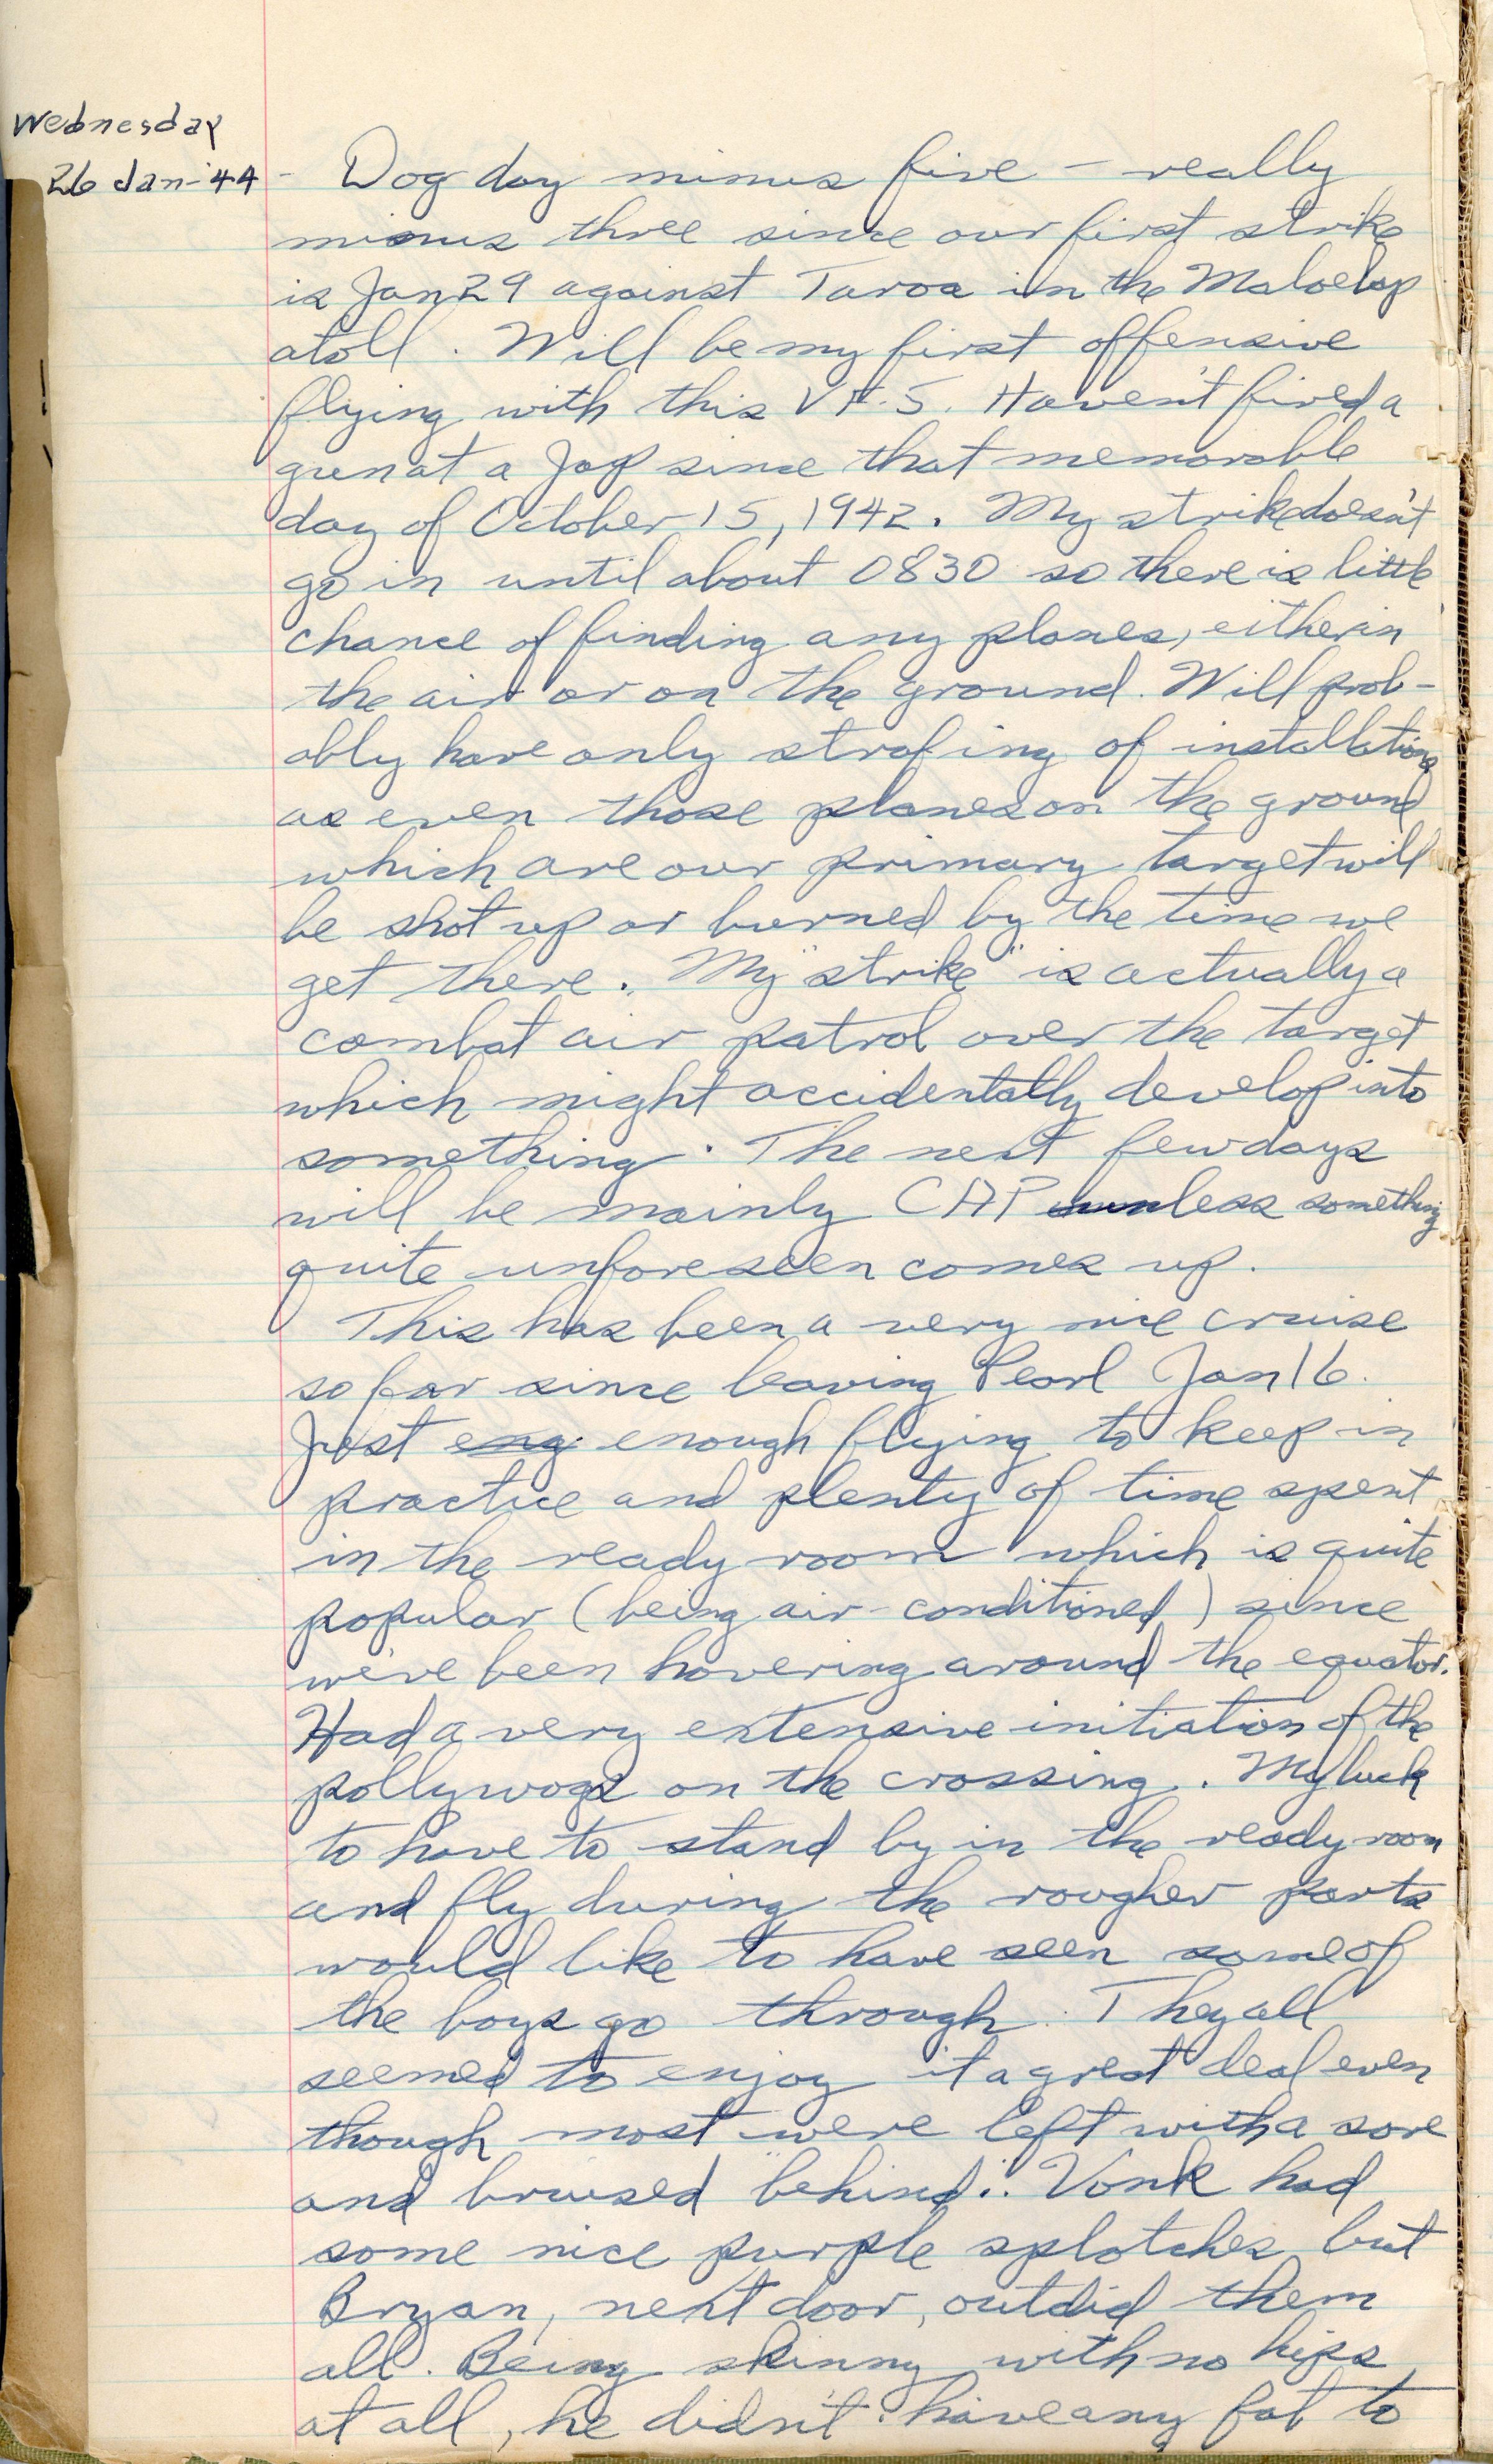 Wednesday
26 Jan-'44 - Dog day minus five - really
minus three since our first strike
is Jan 29 against Taroa in the Maloelap
atoll. Will be my first offensive
flying with this VF-5. Haven't fired a
gun at a Jap since that memorable
day of October 15, 1942. My strike doesn't
go in until about 0830 so there is little
chance of finding any planes, either in
the air or on the ground. Will prob-
ably have only strafing of installations
as even those planes on the ground
which are our primary target will
be shot up or burned by the time we
get there. My "strike" is actually a
combat air patrol over the target
which might accidentally develop into
something. The next few days
will be mainly CAP unless something
quite unforeseen comes up.
This has been a very nice cruise
so far since leaving Pearl Jan 16.
Just eng enough flying to keep in
practice and plenty of time spent
in the ready room which is quite
popular (being air-conditioned) since
we've been hovering around the equator.
Had a very extensive initiation of the
pollywogs on the crossing. My luck
to have to stand by in the ready room
and fly during the rougher parts
would like to have seen some of
the boys go through. They all
seemed to enjoy it a great deal even
though most were left with a sore
and bruised "behind". Vonk had
some nice purple splotches but
Bryan, next door, outdid them
all. Being skinny with no hips
at all, he didn't have any fat to